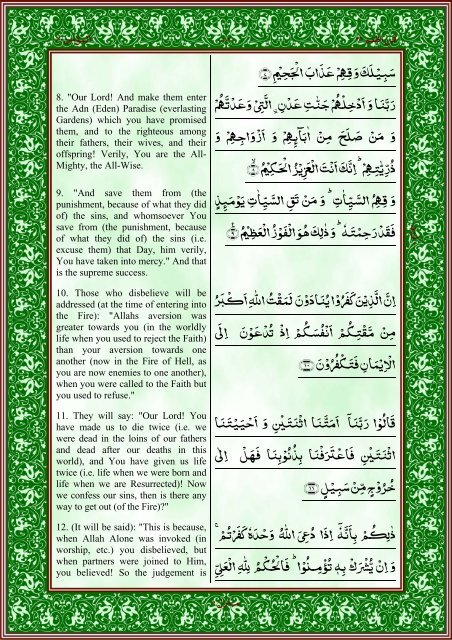 8. "Our Lord! And make them enter
the Adn (Eden) Paradise (everlasting
Gardens) which you have promised
them, and to the righteous among
their fathers, their wives, and their
offspring! Verily, You are the All-
Mighty, the All-Wise.
9. "And save them from (the
punishment, because of what they did
of) the sins, and whomsoever You
save from (the punishment, because
of what they did of) the sins (i.e.
excuse them) that Day, him verily,
You have taken into mercy." And that
is the supreme success.
10. Those who disbelieve will be
addressed (at the time of entering into
the Fire): "Allahs aversion was
greater towards you (in the worldly
life when you used to reject the Faith)
than your aversion towards one
another (now in the Fire of Hell, as
you are now enemies to one another),
when you were called to the Faith but
you used to refuse."
11. They will say: "Our Lord! You
have made us to die twice (i.e. we
were dead in the loins of our fathers
and dead after our deaths in this
world), and You have given us life
twice (i.e. life when we were born and
life when we are Resurrected)! Now
we confess our sins, then is there any
way to get out (of the Fire)?"
12. (It will be said): "This is because,
when Allah Alone was invoked (in
worship, etc.) you disbelieved, but
when partners were joined to Him,
you believed! So the judgement is
سَبِيْلَكَ وَقِهِمْ عَذَابَ الْجَحِيْمِ
رَبَّنَا وَ اَدْخِلْهُمْ جَنّٰتِ عَدْنِ ۨالَّتِىْ وَعَدْتَّهُمْ
وَ مَنْ صَلَحَ مِنْ اٰبَآىِٕهِمْ وَ اَزْوَاجِهِمْ وَ
ذُرِّيّٰتِهِمْ ؕ اِنَّكَ اَنْتَ الْعَزِيْزُ الْحَكِيْمُ
وَ قِهِمُ السَّيِّاٰتِ ؕ وَ مَنْ تَقِ السَّيِّاٰتِ يَوْمَىِٕذٍ
فَقَدْ رَحِمْتَهٗ ؕ وَ ذٰلِكَ هُوَ الْفَوْزُ الْعَظِيْمُ
اِنَّ الَّذِيْنَ كَفَرُوْا يُنَادَوْنَ لَمَقْتُ اللّٰهِ اَكْبَرُ
مِنْ مَّقْتِكُمْ اَنْفُسَكُمْ اِذْ تُدْعَوْنَ اِلَى
الْاِيْمَانِ فَتَكْفُرُوْنَ
قَالُوْا رَبَّنَاۤ اَمَتَّنَا اثْنَتَيْنِ وَ اَحْيَيْتَنَا
اثْنَتَيْنِ فَاعْتَرَفْنَا بِذُنُوْبِنَا فَهَلْ اِلٰى
خُرُوْجٍ مِّنْ سَبِيْلٍ
ذٰلِكُمْ بِاَنَّهٗۤ اِذَا دُعِىَ اللّٰهُ وَحْدَهٗ كَفَرْتُمْ ۚ
وَ اِنْ يُّشْرَكْ بِهٖ تُؤْمِنُوْا ؕ فَالْحُكْمُ لِلّٰهِ الْعَلِىِّ